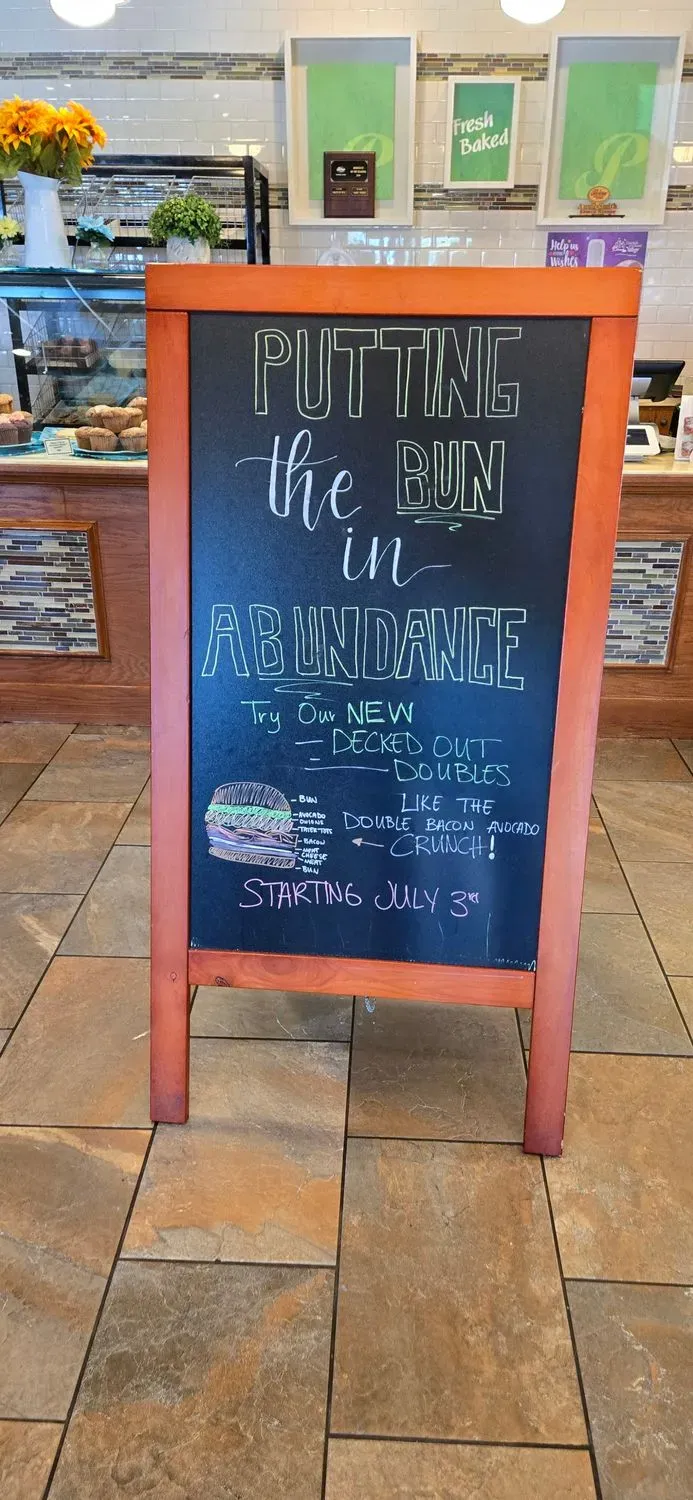 Fresh
Baked
P
Help us
Wishes
PUTTING
the BUN
in
ABUNDANCE
Try Our NEW
— DECKED OUT
— DOUBLES
BUN
AVOCADO
ONIONS
TATER TOTS
BACON
MEAT
CHEESE
MEAT
BUN
LIKE THE
DOUBLE BACON AVOCADO
CRUNCH!
STARTING JULY 3rd